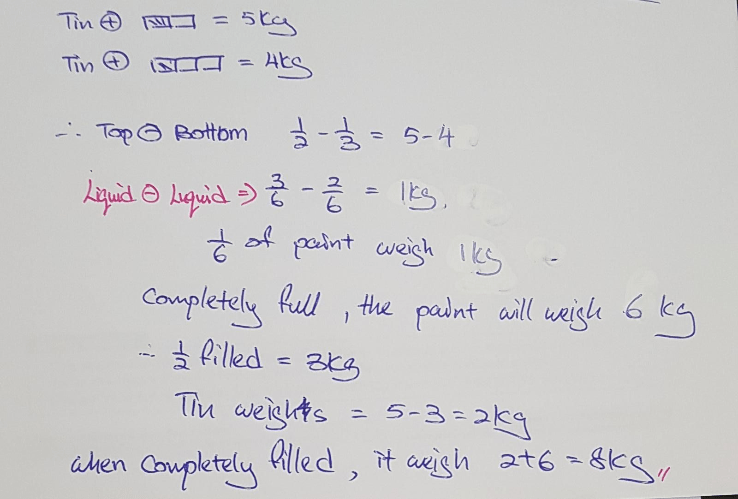 Tin ⊕ = 5kg
Tin ⊕ = 4kg
∴ Top ⊖ Bottom 1/2 - 1/3 = 5-4
Liquid ⊖ Liquid ⇒ 3/6 - 2/6 = 1kg.
1/6 of paint weigh 1kg
Completely full, the paint will weigh 6 kg
∴ 1/2 filled = 3kg
Tin weights = 5-3=2kg
when completely filled, it weigh 2+6 = 8kg